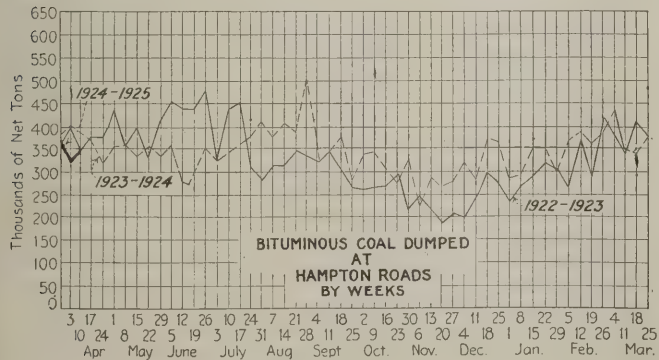 650
600
550
500
450
400
350
300
250
200
150
100
50
0
Thousands of Net Tons
1924-1925
1923-1924
1922-1923
BITUMINOUS COAL DUMPED
AT
HAMPTON ROADS
BY WEEKS
3 17 1 15 29 12 26 10 24 7 21 4 18 2 16 30 13 27 11 25 8 22 5 19 4 18
10 24 8 22 5 19 3 17 31 14 28 11 25 9 23 6 20 4 18 1 15 29 12 26 11 25
Apr May June July Aug Sept Oct. Nov. Dec. Jan. Feb. Mar.